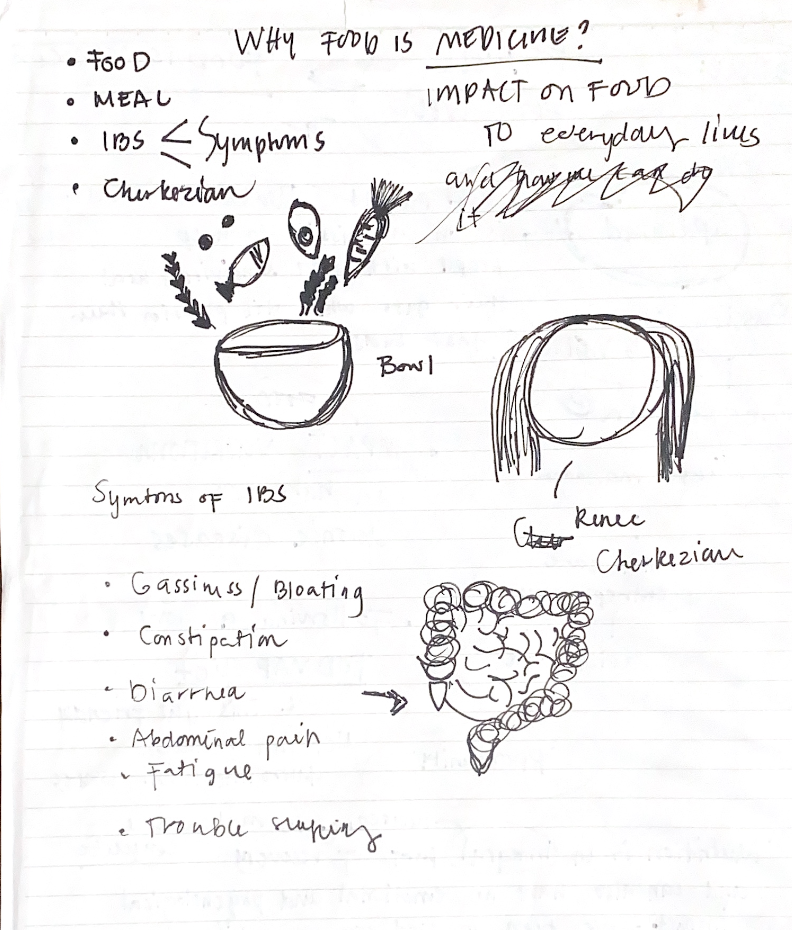 WHY FOOD IS MEDICINE?
• FOOD
• MEAL
• IBS < Symptoms
• Cherkezian
IMPACT ON FOOD
TO everyday lives
and how we can do
it
Bowl
Renee
Cherkezian
Symtons of IBS
• Gassiness / Bloating
• Constipation
• Diarrhea
• Abdominal pain
• Fatigue
• Trouble sleeping